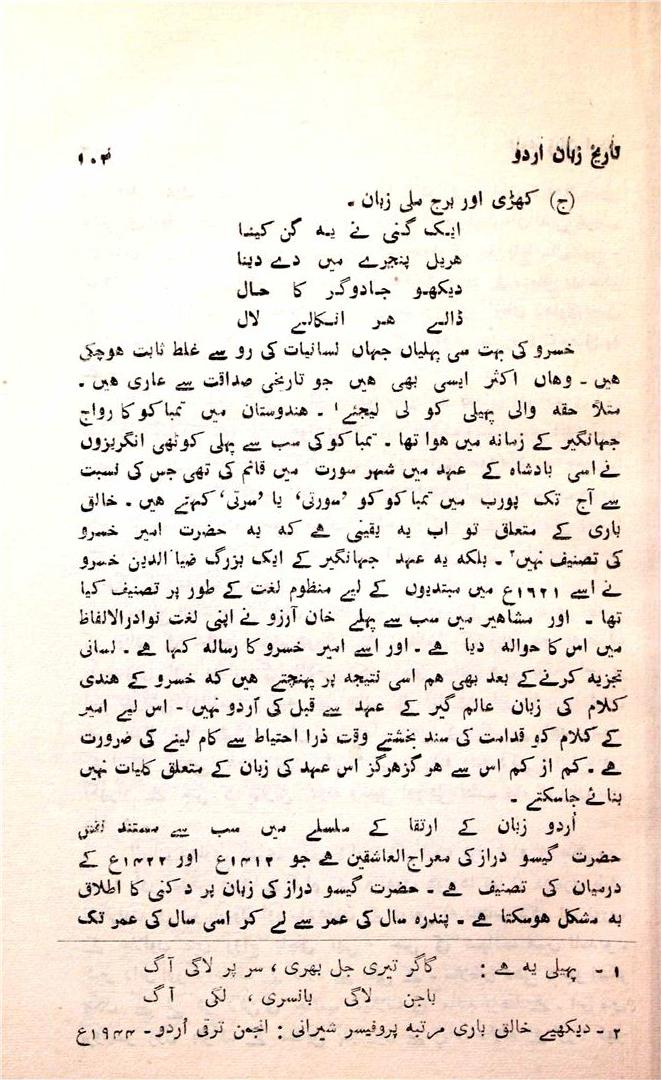 تاریخ زبان اردو ۱۰۴
(ج) کھڑی اور برج ملی زبان ۔
ایک گنی نے یہ گن کینا
ھریل پنجرے میں دے دینا
دیکھو جادوگر کا حال
ڈالے ھر انکالے لال
خسرو کی بہت سی پہلیاں جہاں لسانیات کی رو سے غلط ثابت ہوچکی
ھیں ۔ وھاں اکثر ایسی بھی ھیں جو تاریخی صداقت سے عاری ھیں ۔
مثلاً حقہ والی پہیلی کو لی لیجئے۱ ۔ ھندوستان میں تمباکو کا رواج
جہانگیر کے زمانہ میں ھوا تھا ۔ تمباکو کی سب سے پہلی کوٹھی انگریزوں
نے اسی بادشاہ کے عہد میں شہر سورت میں قائم کی تھی جس کی نسبت
سے آج تک پورب میں تمباکو کو ’سورتی‘ یا ’سرتی‘ کہتے ھیں ۔ خالق
باری کے متعلق تو اب یہ یقینی ھے کہ یہ حضرت امیر خسرو
کی تصنیف نہیں۲ ۔ بلکہ یہ عہد جہانگیر کے ایک بزرگ ضیا الدین خسرو
نے اسے ۱۶۲۱ع میں مبتدیوں کے لیے منظوم لغت کے طور پر تصنیف کیا
تھا ۔ اور مشاھیر میں سب سے پہلے خان آرزو نے اپنی لغت نوادرالالفاظ
میں اس کا حوالہ دیا ھے ۔ اور اسے امیر خسرو کا رسالہ کہا ھے ۔ لسانی
تجزیہ کرنے کے بعد بھی ھم اسی نتیجہ پر پہنچتے ھیں کہ خسرو کے ھندی
کلام کی زبان عالم گیر کے عہد سے قبل کی اُردو نہیں ۔ اس لیے امیر
کے کلام کو قدامت کی سند بخشتے وقت ذرا احتیاط سے کام لینے کی ضرورت
ھے ۔ کم از کم اس سے ھرگزھرگز اس عہد کی زبان کے متعلق کلیات نہیں
بنائے جاسکتے ۔
اُردو زبان کے ارتقا کے سلسلے میں سب سے مستند نقش
حضرت گیسو دراز کی معراج العاشقین ھے جو ۱۴۱۲ع اور ۱۴۲۲ع کے
درمیان کی تصنیف ھے ۔ حضرت گیسو دراز کی زبان پر دکنی کا اطلاق
بہ مشکل ھوسکتا ھے ۔ پندرہ سال کی عمر سے لے کر اسی سال کی عمر تک
۱ ۔ پہیلی یہ ھے : گاگر تیری جل بھری ، سر پر لاگی آگ
باجن لاگی بانسری ، لگی آگ
۲ ۔ دیکھیے خالق باری مرتبہ پروفیسر شیرانی : انجمن ترقی اُردو ۔ ۱۹۴۴ع